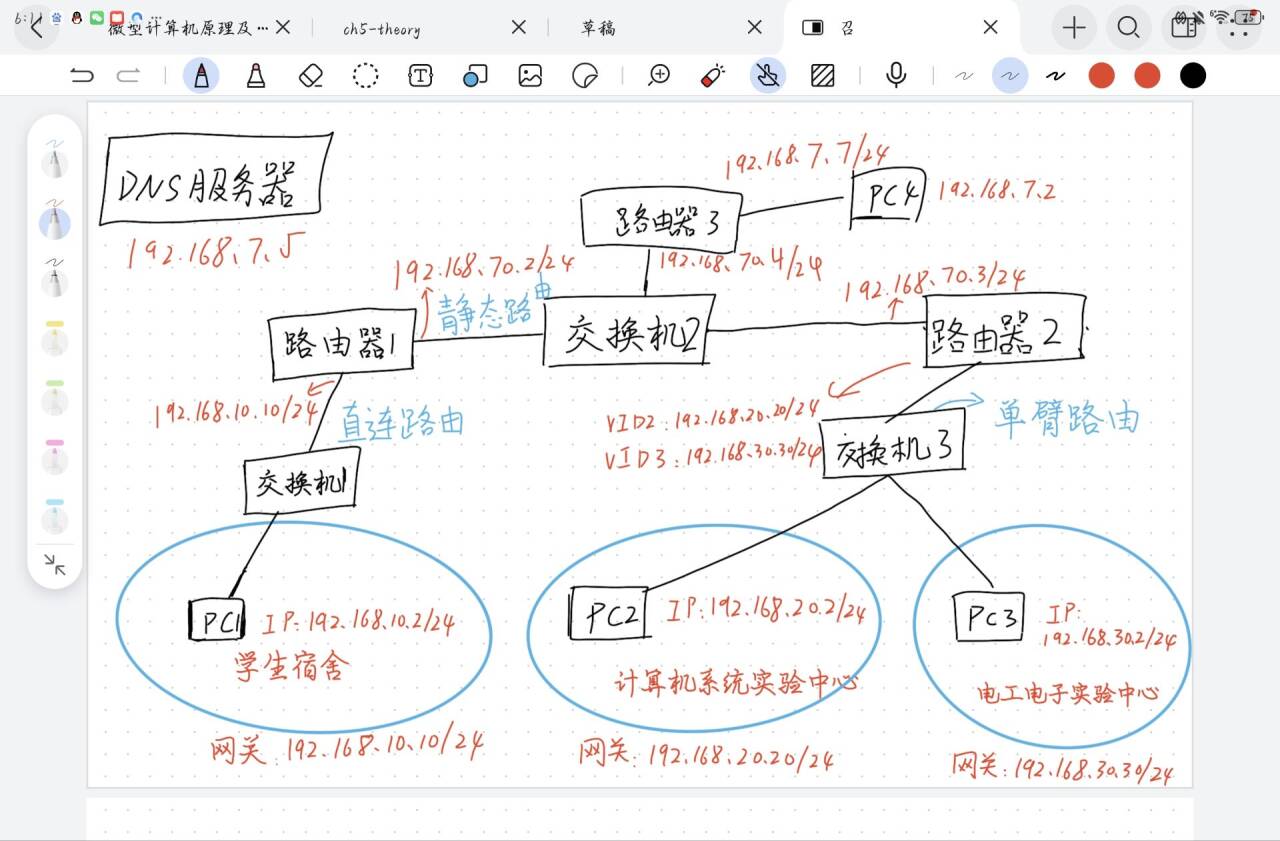 6:11
微型计算机原理及…
ch5-theory
草稿
召
DNS服务器
192.168.7.5
192.168.7.7/24
PC4
192.168.7.2
路由器3
192.168.70.4/24
192.168.70.2/24
静态路由
192.168.70.3/24
路由器1
交换机2
路由器2
192.168.10.10/24
直连路由
VID2:192.168.20.20/24
VID3:192.168.30.30/24
交换机3
单臂路由
交换机1
PC1
IP:192.168.10.2/24
学生宿舍
PC2
IP:192.168.20.2/24
计算机系统实验中心
PC3
IP:
192.168.30.2/24
电工电子实验中心
网关:192.168.10.10/24
网关:192.168.20.20/24
网关:192.168.30.30/24